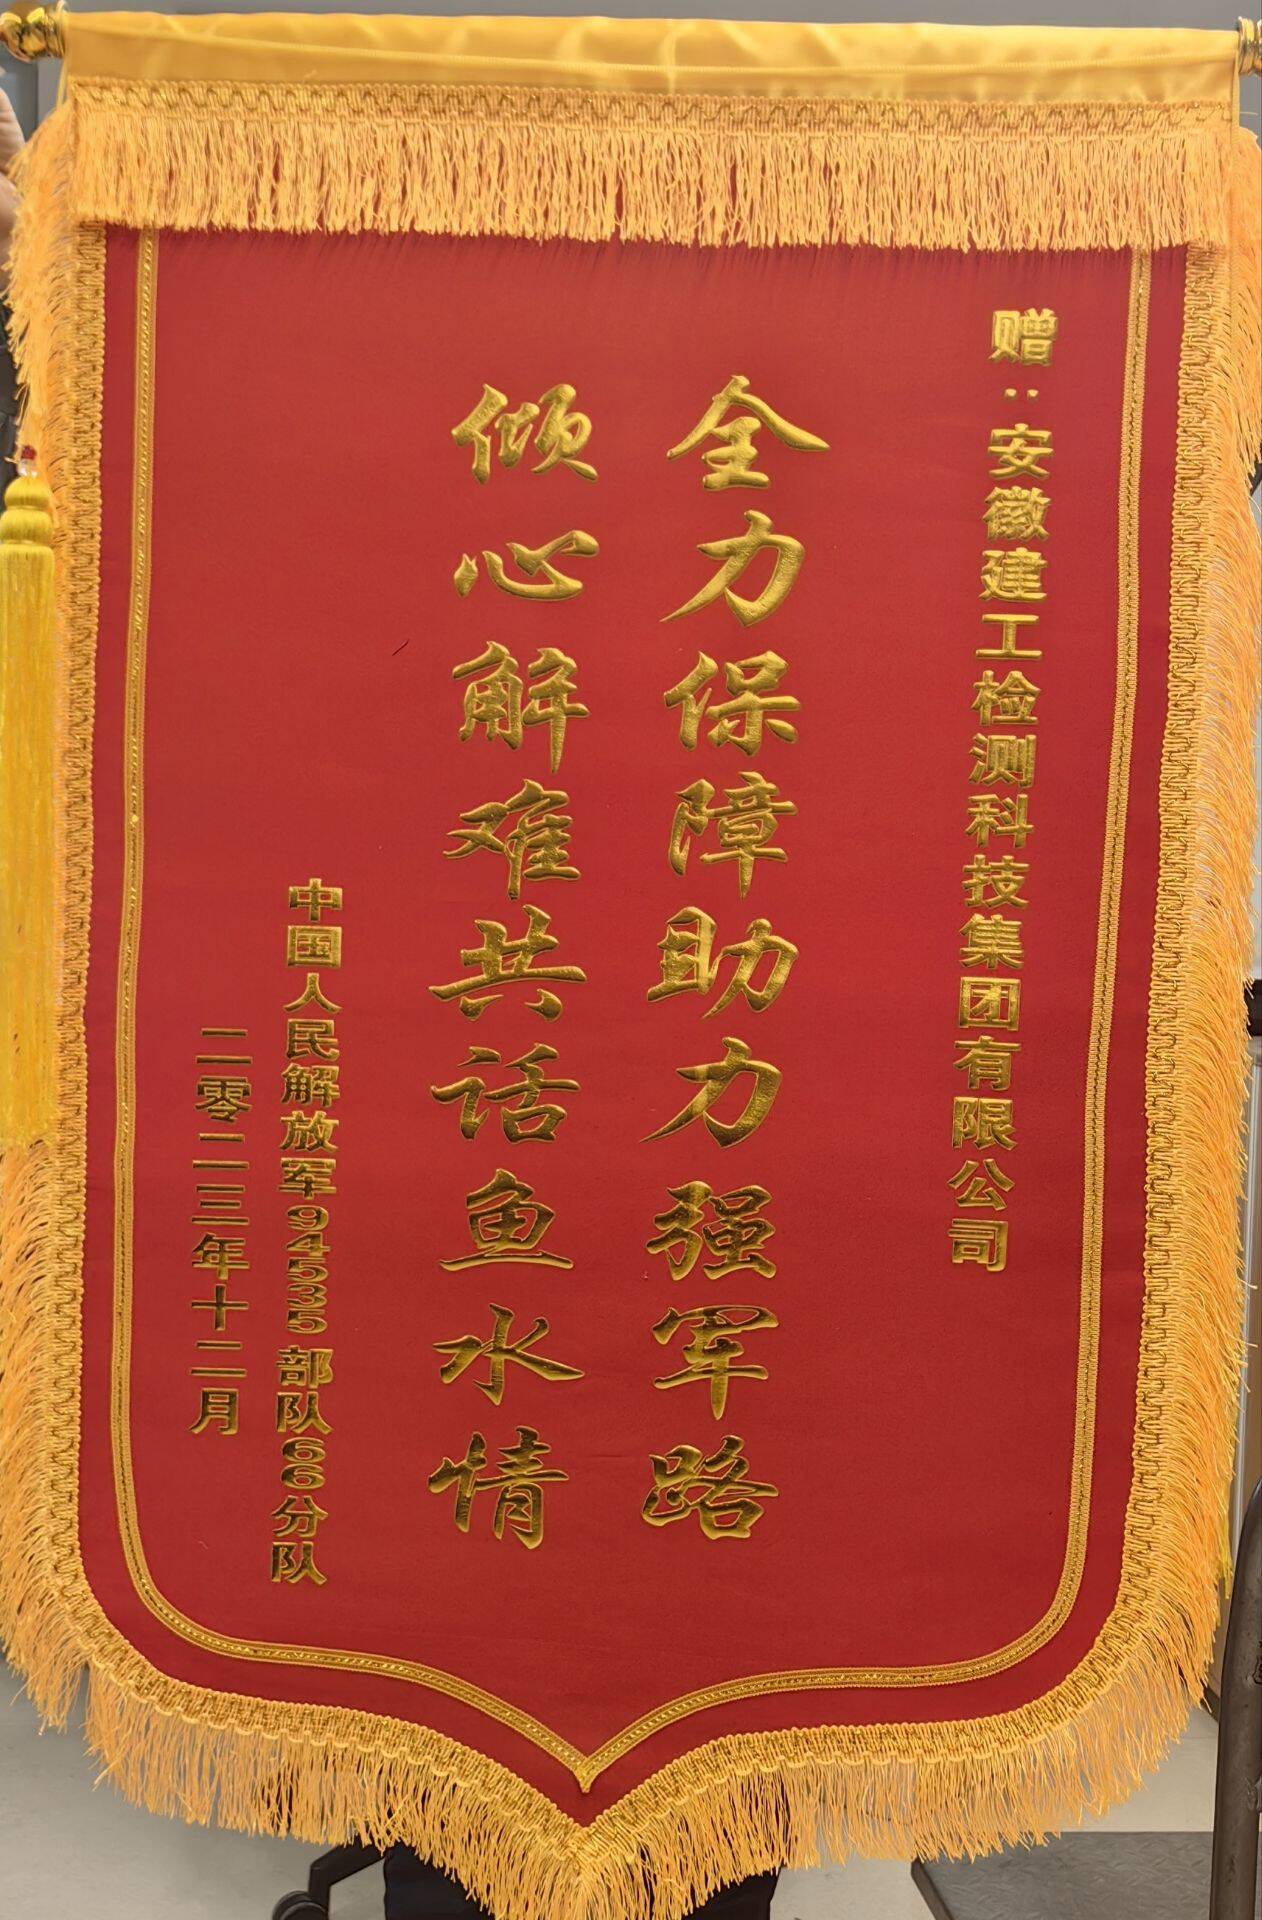 赠：安徽建工检测科技集团有限公司
全力保障助力强军路
倾心解难共话鱼水情
中国人民解放军94535部队66分队
二零二三年十二月